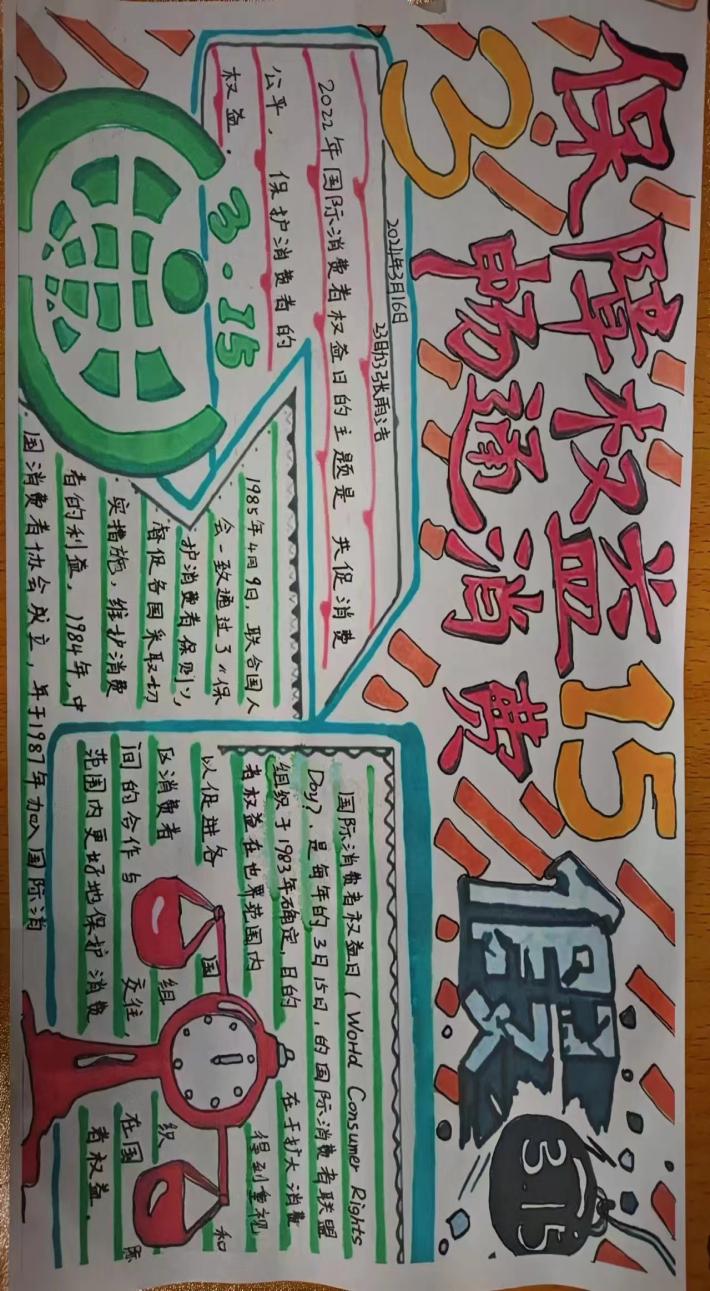 3
保障权益
畅通消费
15
假
3.15
2024年3月16日
23助3张雨洁
2022年国际消费者权益日的主题是 共促消费
公平，保护消费者的
权益.
3.15
1985年4月9日，联合国人
会一致通过了《保
护消费者保则》，
督促各国采取切
实措施，维护消费
者的利益，1984年，中
国消费者协会成立，并于1987年加入国际消
国际消费者权益日（World Consumer Rights
Day），是每年的3月15日，的国际消费者联盟
组织于1983年确定，目的 在于扩大消费
者权益在世界范围内 得到重视
以促进各 国 和
区消费者 组 织
间的合作与 交往， 在国 际
范围内更好地保护消费 者权益.